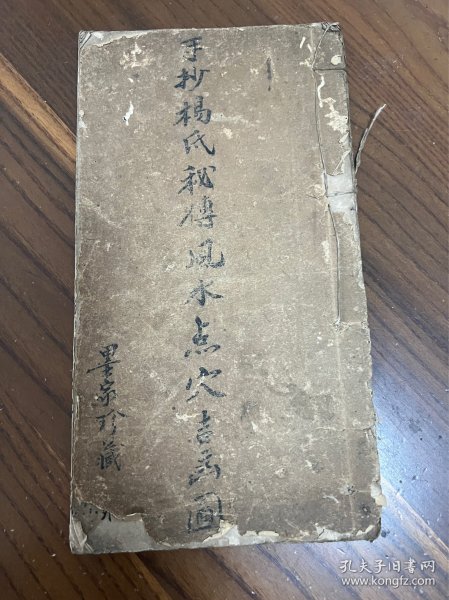 手抄楊氏秘傳風水点穴吉凶圖
墨家珍藏
孔夫子旧书网
www.kongfz.com